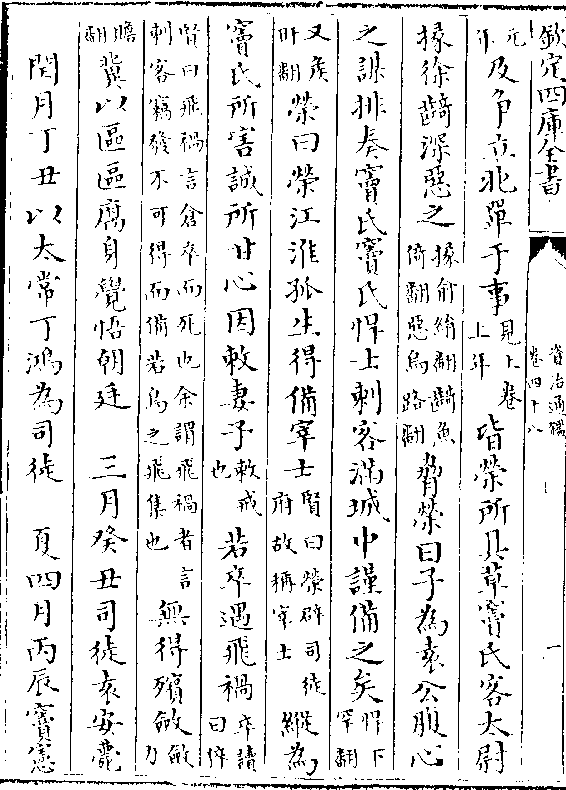 欽定四庫全書
資治通鑑
卷四十八
一
元年及争立北單于事見上卷上年皆榮所具草竇氏客太尉
掾徐齮深惡之掾俞絹翻齮魚倚翻惡烏路翻脅榮曰子為袁公腹心
之謀排奏竇氏竇氏悍士刺客滿城中謹備之矣悍下罕翻
又侯旰翻榮曰榮江淮孤生得備宰士賢曰榮辟司徒府故稱宰士縱為
竇氏所害誠所甘心因敕妻子敕戒也若卒遇飛禍卒讀曰倅
賢曰飛禍言倉卒而死也余謂飛禍者言刺客竊發不可得而備若鳥之飛集也無得殯斂斂力
贍翻冀以區區腐身覺悟朝廷 三月癸丑司徒袁安薨
閏月丁丑以太常丁鴻為司徒 夏四月丙辰竇憲